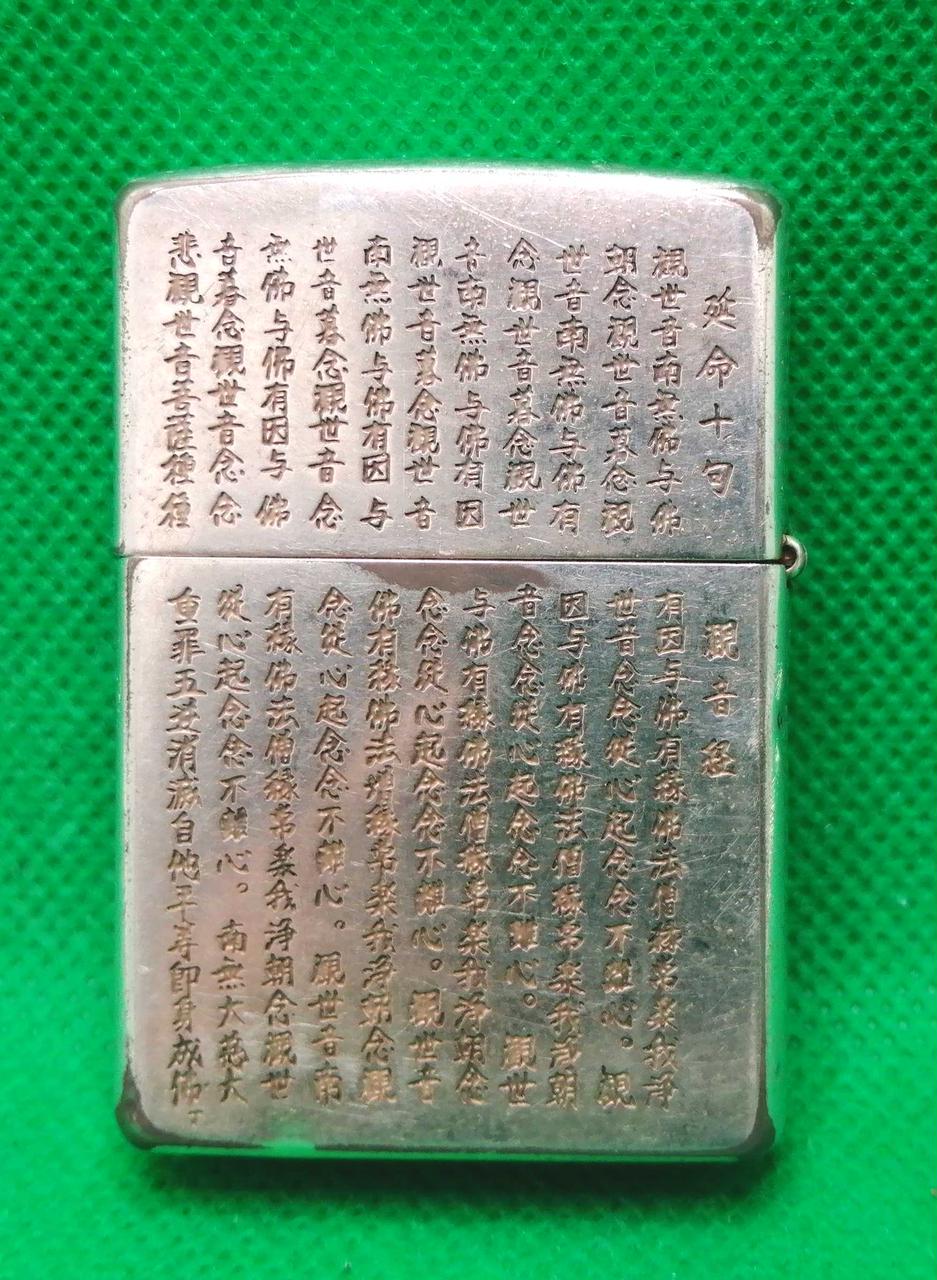 延命十句觀音経
觀世音南無佛与佛有因与佛有縁佛法僧縁常楽我淨
朝念觀世音暮念觀世音念念從心起念念不離心。觀
世音南無佛与佛有因与佛有縁佛法僧縁常楽我淨朝
念觀世音暮念觀世音念念從心起念念不離心。觀世
音南無佛与佛有因与佛有縁佛法僧縁常楽我淨朝念
觀世音暮念觀世音念念從心起念念不離心。觀世音
南無佛与佛有因与佛有縁佛法增縁常楽我淨朝念觀
世音暮念觀世音念念從心起念念不離心。觀世音南
無佛与佛有因与佛有縁佛法僧縁常楽我淨朝念觀世
音暮念觀世音念念從心起念念不離心。南無大慈大
悲觀世音菩薩種種重罪五逆消滅自他平等即身成佛